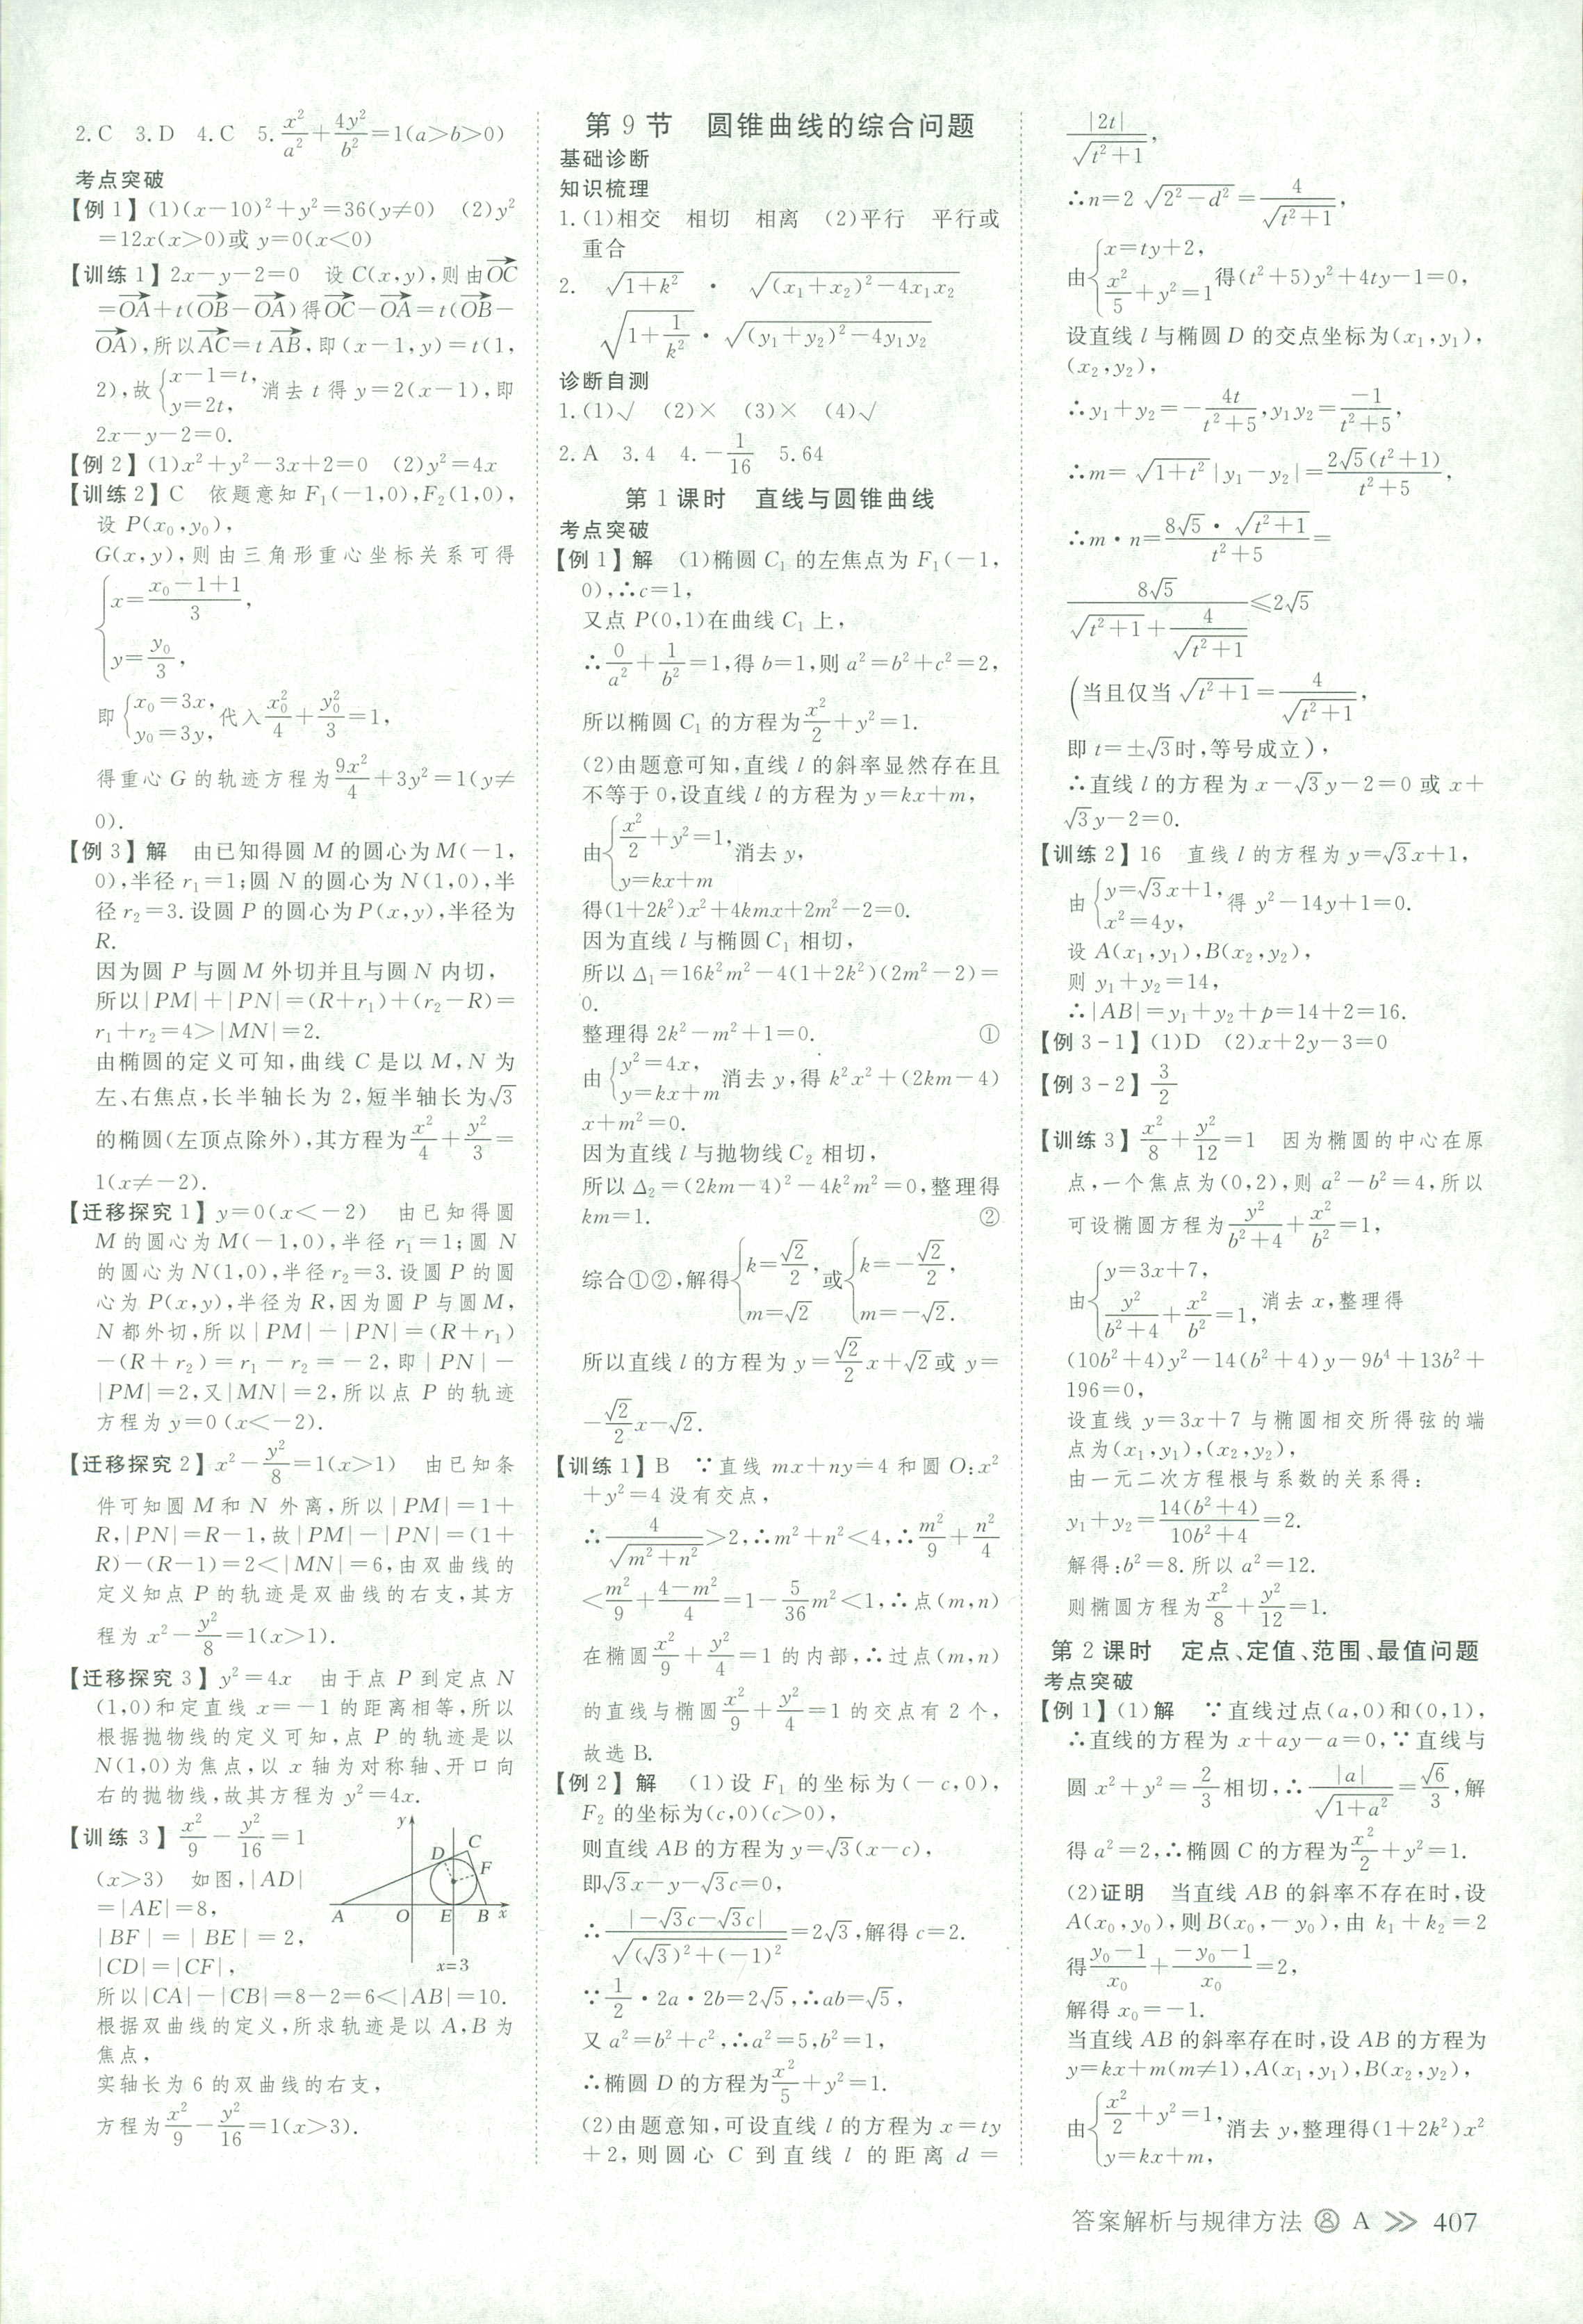 2.C　3.D　4.C　5.x²/a²+4y²/b²=1(a>b>0)
考点突破
【例1】(1)(x-10)²+y²=36(y≠0)　(2)y²
=12x(x>0)或 y=0(x<0)
【训练1】2x-y-2=0　设C(x,y),则由OC→
=OA→+t(OB→-OA→)得OC→-OA→=t(OB→-
OA→),所以AC→=tAB→,即(x-1,y)=t(1,
2),故{x-1=t, y=2t,消去 t 得 y=2(x-1),即
2x-y-2=0.
【例2】(1)x²+y²-3x+2=0　(2)y²=4x
【训练2】C　依题意知 F₁(-1,0),F₂(1,0),
设 P(x₀,y₀),
G(x,y),则由三角形重心坐标关系可得
{x=(x₀-1+1)/3,
y=y₀/3,
即{x₀=3x, y₀=3y,代入x₀²/4+y₀²/3=1,
得重心 G 的轨迹方程为9x²/4+3y²=1(y≠
0).
【例3】解　由已知得圆 M 的圆心为 M(-1,
0),半径 r₁=1;圆 N 的圆心为 N(1,0),半
径 r₂=3.设圆 P 的圆心为 P(x,y),半径为
R.
因为圆 P 与圆 M 外切并且与圆 N 内切,
所以|PM|+|PN|=(R+r₁)+(r₂-R)=
r₁+r₂=4>|MN|=2.
由椭圆的定义可知,曲线 C 是以 M,N 为
左、右焦点,长半轴长为 2,短半轴长为√3
的椭圆(左顶点除外),其方程为x²/4+y²/3=
1(x≠-2).
【迁移探究1】y=0(x<-2)　由已知得圆
M 的圆心为 M(-1,0),半径 r₁=1;圆 N
的圆心为 N(1,0),半径 r₂=3.设圆 P 的圆
心为 P(x,y),半径为 R,因为圆 P 与圆 M,
N 都外切,所以|PM|-|PN|=(R+r₁)
-(R+r₂)=r₁-r₂=-2,即|PN|-
|PM|=2,又|MN|=2,所以点 P 的轨迹
方程为 y=0(x<-2).
【迁移探究2】x²-y²/8=1(x>1)　由已知条
件可知圆 M 和 N 外离,所以|PM|=1+
R,|PN|=R-1,故|PM|-|PN|=(1+
R)-(R-1)=2<|MN|=6,由双曲线的
定义知点 P 的轨迹是双曲线的右支,其方
程为 x²-y²/8=1(x>1).
【迁移探究3】y²=4x　由于点 P 到定点 N
(1,0)和定直线 x=-1 的距离相等,所以
根据抛物线的定义可知,点 P 的轨迹是以
N(1,0)为焦点,以 x 轴为对称轴、开口向
右的抛物线,故其方程为 y²=4x.
【训练3】x²/9-y²/16=1
(x>3)　如图,|AD|
=|AE|=8,
|BF|=|BE|=2,
|CD|=|CF|,
y
C
D
F
A O E B x
x=3
所以|CA|-|CB|=8-2=6<|AB|=10.
根据双曲线的定义,所求轨迹是以 A,B 为
焦点,
实轴长为 6 的双曲线的右支,
方程为x²/9-y²/16=1(x>3).
第9节　圆锥曲线的综合问题
基础诊断
知识梳理
1.(1)相交　相切　相离　(2)平行　平行或
重合
2.　√(1+k²)　·　√((x₁+x₂)²-4x₁x₂)
√(1+1/k²)·√((y₁+y₂)²-4y₁y₂)
诊断自测
1.(1)√　(2)×　(3)×　(4)√
2.A　3.4　4.-1/16　5.64
第1课时　直线与圆锥曲线
考点突破
【例1】解　(1)椭圆 C₁ 的左焦点为 F₁(-1,
0),∴c=1,
又点 P(0,1)在曲线 C₁ 上,
∴0/a²+1/b²=1,得 b=1,则 a²=b²+c²=2,
所以椭圆 C₁ 的方程为x²/2+y²=1.
(2)由题意可知,直线 l 的斜率显然存在且
不等于 0,设直线 l 的方程为 y=kx+m,
由{x²/2+y²=1, y=kx+m 消去 y,
得(1+2k²)x²+4kmx+2m²-2=0.
因为直线 l 与椭圆 C₁ 相切,
所以 Δ₁=16k²m²-4(1+2k²)(2m²-2)=
0.
整理得 2k²-m²+1=0.　①
由{y²=4x, y=kx+m 消去 y,得 k²x²+(2km-4)
x+m²=0.
因为直线 l 与抛物线 C₂ 相切,
所以 Δ₂=(2km-4)²-4k²m²=0,整理得
km=1.　②
综合①②,解得{k=√2/2, m=√2 或{k=-√2/2, m=-√2.
所以直线 l 的方程为 y=√2/2x+√2或 y=
-√2/2x-√2.
【训练1】B　∵直线 mx+ny=4 和圆 O:x²
+y²=4 没有交点,
∴4/√(m²+n²)>2,∴m²+n²<4,∴m²/9+n²/4
<m²/9+(4-m²)/4=1-5/36m²<1,∴点(m,n)
在椭圆x²/9+y²/4=1 的内部,∴过点(m,n)
的直线与椭圆x²/9+y²/4=1 的交点有 2 个,
故选 B.
【例2】解　(1)设 F₁ 的坐标为(-c,0),
F₂ 的坐标为(c,0)(c>0),
则直线 AB 的方程为 y=√3(x-c),
即√3x-y-√3c=0,
∴|-√3c-√3c|/√((√3)²+(-1)²)=2√3,解得 c=2.
∵1/2·2a·2b=2√5,∴ab=√5,
又 a²=b²+c²,∴a²=5,b²=1,
∴椭圆 D 的方程为x²/5+y²=1.
(2)由题意知,可设直线 l 的方程为 x=ty
+2,则圆心 C 到直线 l 的距离 d=
|2t|/√(t²+1),
∴n=2√(2²-d²)=4/√(t²+1),
由{x=ty+2, x²/5+y²=1 得(t²+5)y²+4ty-1=0,
设直线 l 与椭圆 D 的交点坐标为(x₁,y₁),
(x₂,y₂),
∴y₁+y₂=-4t/(t²+5),y₁y₂=-1/(t²+5),
∴m=√(1+t²)|y₁-y₂|=2√5(t²+1)/(t²+5),
∴m·n=8√5·√(t²+1)/(t²+5)=
8√5/(√(t²+1)+4/√(t²+1))≤2√5
(当且仅当√(t²+1)=4/√(t²+1),
即 t=±√3时,等号成立),
∴直线 l 的方程为 x-√3y-2=0 或 x+
√3y-2=0.
【训练2】16　直线 l 的方程为 y=√3x+1,
由{y=√3x+1, x²=4y,得 y²-14y+1=0.
设 A(x₁,y₁),B(x₂,y₂),
则 y₁+y₂=14,
∴|AB|=y₁+y₂+p=14+2=16.
【例3-1】(1)D　(2)x+2y-3=0
【例3-2】3/2
【训练3】x²/8+y²/12=1　因为椭圆的中心在原
点,一个焦点为(0,2),则 a²-b²=4,所以
可设椭圆方程为y²/(b²+4)+x²/b²=1,
由{y=3x+7, y²/(b²+4)+x²/b²=1,消去 x,整理得
(10b²+4)y²-14(b²+4)y-9b⁴+13b²+
196=0,
设直线 y=3x+7 与椭圆相交所得弦的端
点为(x₁,y₁),(x₂,y₂),
由一元二次方程根与系数的关系得:
y₁+y₂=14(b²+4)/(10b²+4)=2.
解得:b²=8.所以 a²=12.
则椭圆方程为x²/8+y²/12=1.
第2课时　定点、定值、范围、最值问题
考点突破
【例1】(1)解　∵直线过点(a,0)和(0,1),
∴直线的方程为 x+ay-a=0,∵直线与
圆 x²+y²=2/3相切,∴|a|/√(1+a²)=√6/3,解
得 a²=2,∴椭圆 C 的方程为x²/2+y²=1.
(2)证明　当直线 AB 的斜率不存在时,设
A(x₀,y₀),则B(x₀,-y₀),由 k₁+k₂=2
得(y₀-1)/x₀+(-y₀-1)/x₀=2,
解得 x₀=-1.
当直线 AB 的斜率存在时,设 AB 的方程为
y=kx+m(m≠1),A(x₁,y₁),B(x₂,y₂),
由{x²/2+y²=1, y=kx+m,消去 y,整理得(1+2k²)x²
答案解析与规律方法 A >> 407